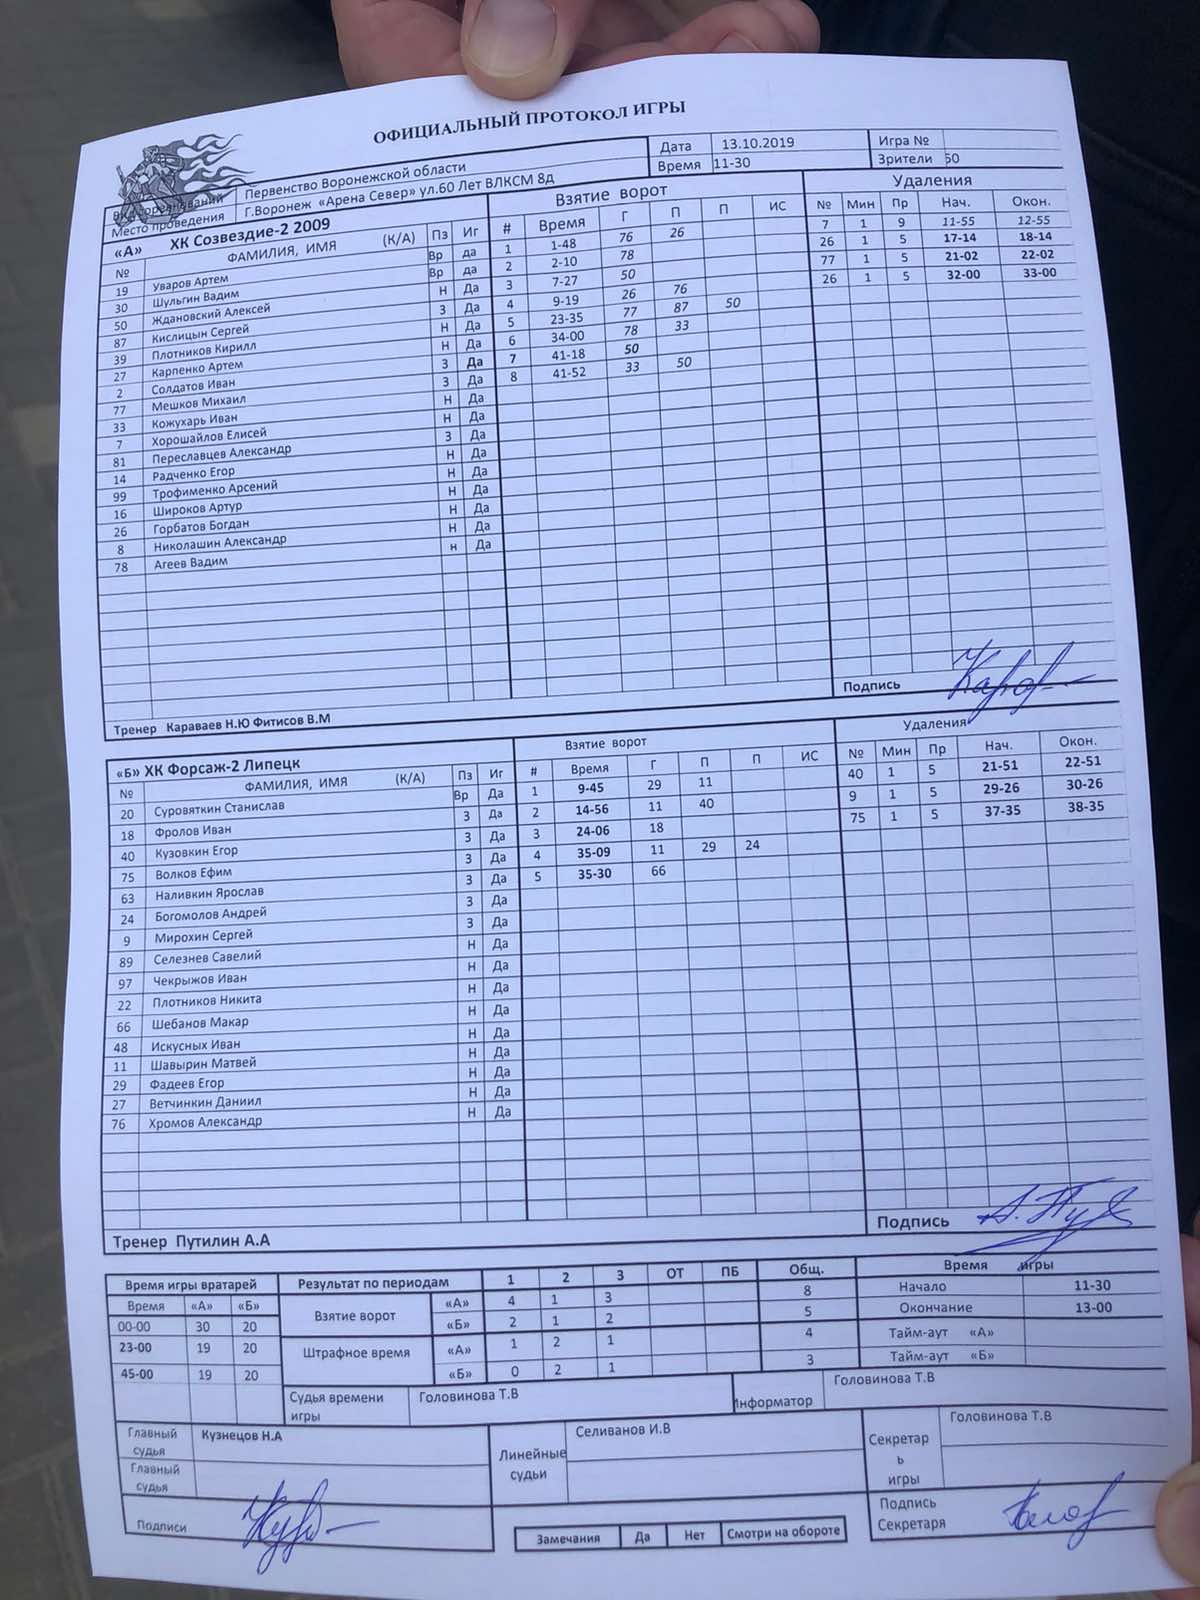 ОФИЦИАЛЬНЫЙ ПРОТОКОЛ ИГРЫ
Вид соревнований Первенство Воронежской области Дата 13.10.2019 Игра №
Место проведения Г.Воронеж «Арена Север» ул.60 Лет ВЛКСМ 8д Время 11-30 Зрители 50
«А» ХК Созвездие-2 2009 Взятие ворот Удаления
№ ФАМИЛИЯ, ИМЯ (К/А) Пз Иг # Время Г П П ИС № Мин Пр Нач. Окон.
19 Уваров Артем Вр да 1 1-48 76 26 7 1 9 11-55 12-55
30 Шульгин Вадим Вр да 2 2-10 78 26 1 5 17-14 18-14
50 Ждановский Алексей Н Да 3 7-27 50 77 1 5 21-02 22-02
87 Кислицын Сергей З Да 4 9-19 26 76 26 1 5 32-00 33-00
39 Плотников Кирилл Н Да 5 23-35 77 87 50
27 Карпенко Артем Н Да 6 34-00 78 33
2 Солдатов Иван З Да 7 41-18 50
77 Мешков Михаил З Да 8 41-52 33 50
33 Кожухарь Иван Н Да
7 Хорошайлов Елисей Н Да
81 Переславцев Александр З Да
14 Радченко Егор Н Да
99 Трофименко Арсений Н Да
16 Широков Артур Н Да
26 Горбатов Богдан Н Да
8 Николашин Александр Н Да
78 Агеев Вадим н Да
Тренер Караваев Н.Ю Фитисов В.М Подпись
«Б» ХК Форсаж-2 Липецк Взятие ворот Удаления
№ ФАМИЛИЯ, ИМЯ (К/А) Пз Иг # Время Г П П ИС № Мин Пр Нач. Окон.
20 Суровяткин Станислав Вр Да 1 9-45 29 11 40 1 5 21-51 22-51
18 Фролов Иван З Да 2 14-56 11 40 9 1 5 29-26 30-26
40 Кузовкин Егор З Да 3 24-06 18 75 1 5 37-35 38-35
75 Волков Ефим З Да 4 35-09 11 29 24
63 Наливкин Ярослав З Да 5 35-30 66
24 Богомолов Андрей З Да
9 Мирохин Сергей З Да
89 Селезнев Савелий Н Да
97 Чекрыжов Иван Н Да
22 Плотников Никита Н Да
66 Шебанов Макар Н Да
48 Искусных Иван Н Да
11 Шавырин Матвей Н Да
29 Фадеев Егор Н Да
27 Ветчинкин Даниил Н Да
76 Хромов Александр Н Да
Тренер Путилин А.А Подпись
Время игры вратарей Результат по периодам 1 2 3 ОТ ПБ Общ. Время игры
Время «А» «Б» Взятие ворот «А» 4 1 3 8 Начало 11-30
00-00 30 20 «Б» 2 1 2 5 Окончание 13-00
23-00 19 20 Штрафное время «А» 1 2 1 4 Тайм-аут «А»
45-00 19 20 «Б» 0 2 1 3 Тайм-аут «Б»
Судья времени игры Головинова Т.В Информатор Головинова Т.В
Главный судья Кузнецов Н.А Линейные судьи Селиванов И.В Секретарь игры Головинова Т.В
Главный судья
Подписи Подпись Секретаря
Замечания Да Нет Смотри на обороте